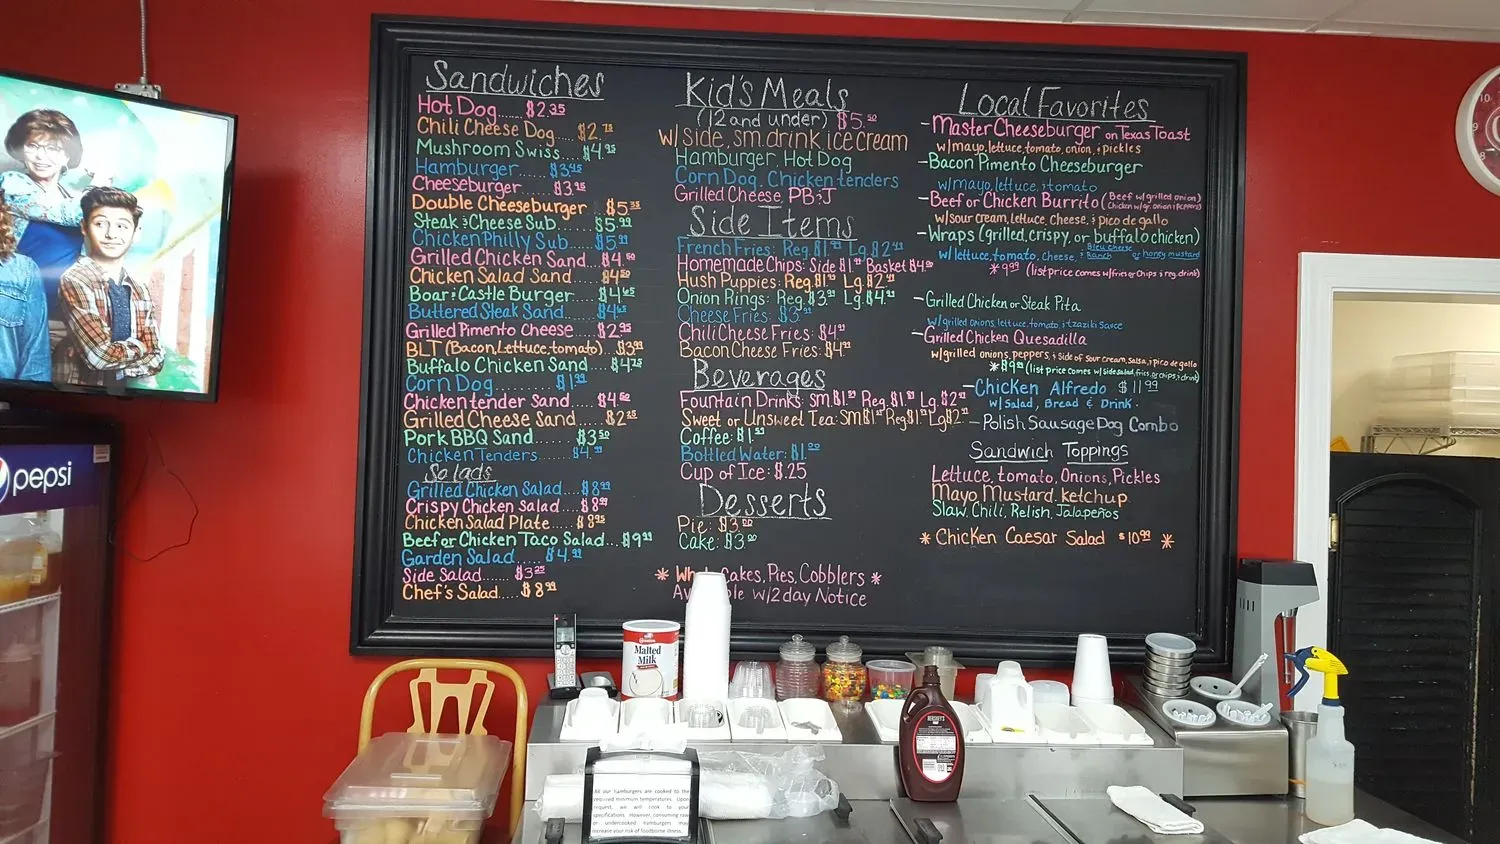 Sandwiches
Hot Dog...... $2.25
Chili Cheese Dog.... $2.75
Mushroom Swiss.... $4.95
Hamburger...... $3.45
Cheeseburger..... $3.95
Double Cheeseburger .. $5.35
Steak & Cheese Sub... $5.99
Chicken Philly Sub... $5.99
Grilled Chicken Sand... $4.50
Chicken Salad Sand .... $4.50
Boar & Castle Burger..... $4.65
Buttered Steak Sand.... $4.65
Grilled Pimento Cheese... $2.95
BLT (Bacon, Lettuce, tomato)... $3.99
Buffalo Chicken Sand .... $4.75
Corn Dog.......... $1.99
Chickentender Sand.... $4.50
Grilled Cheese Sand.... $2.25
Pork BBQ Sand...... $3.50
Chicken Tenders ...... $4.99
Salads
Grilled Chicken Salad.... $8.99
Crispy Chicken Salad.... $8.99
Chicken Salad Plate .... $8.95
Beef or Chicken Taco Salad... $9.99
Garden Salad..... $4.99
Side Salad....... $3.25
Chef's Salad..... $8.99
Kid's Meals
(12 and under) $5.50
w/side, sm. drink, ice cream
Hamburger, Hot Dog
Corn Dog, Chicken tenders
Grilled Cheese, PB&J
Side Items
French Fries: Reg. $1.99 Lg. $2.49
Homemade Chips: Side $1.99 Basket $4.99
Hush Puppies: Reg. $1.99 Lg. $2.49
Onion Rings: Reg. $3.99 Lg. $4.99
Cheese Fries: $3.99
Chili Cheese Fries: $4.99
Bacon Cheese Fries: $4.99
Beverages
Fountain Drinks: Sm. Reg. Lg.
Sweet or Unsweet Tea: Sm Reg. Lg.
Coffee: $1.
Bottled Water: $1.00
Cup of Ice: $.25
Desserts
Pie: $3.00
Cake: $3.00
* Cakes, Pies, Cobblers *
w/2 day Notice
Local Favorites
- Master Cheeseburger on Texas Toast
w/mayo, lettuce, tomato, onion, & pickles
- Bacon Pimento Cheeseburger
w/mayo, lettuce, & tomato
- Beef or Chicken Burrito (Beef w/grilled onion)
Chicken w/gr. onion & peppers)
w/sour cream, lettuce, cheese, & pico de gallo
- Wraps (grilled, crispy, or buffalo chicken)
w/lettuce, tomato, cheese, & Bleu Cheese Ranch or honey mustard
* 9.99 (list price comes w/fries or chips & reg. drink)
- Grilled Chicken or Steak Pita
w/grilled onions, lettuce, tomato, & tzaziki sauce
- Grilled Chicken Quesadilla
w/grilled onions, peppers, & side of sour cream, salsa, & pico de gallo
* $9.99 (list price comes w/side salad, fries, or chips, & drink)
- Chicken Alfredo $11.99
w/Salad, Bread & Drink.
- Polish Sausage Dog Combo
Sandwich Toppings
Lettuce, tomato, Onions, Pickles
Mayo Mustard, ketchup
Slaw, Chili, Relish, Jalapeños
* Chicken Caesar Salad $10.99 *
pepsi
Malted
Milk
HERSHEY'S
All our hamburgers are cooked to the
required minimum temperatures. Upon
request, we will cook to your
specifications. However, consuming raw
or undercooked hamburgers may
increase your risk of foodborne illness.
10
9
8